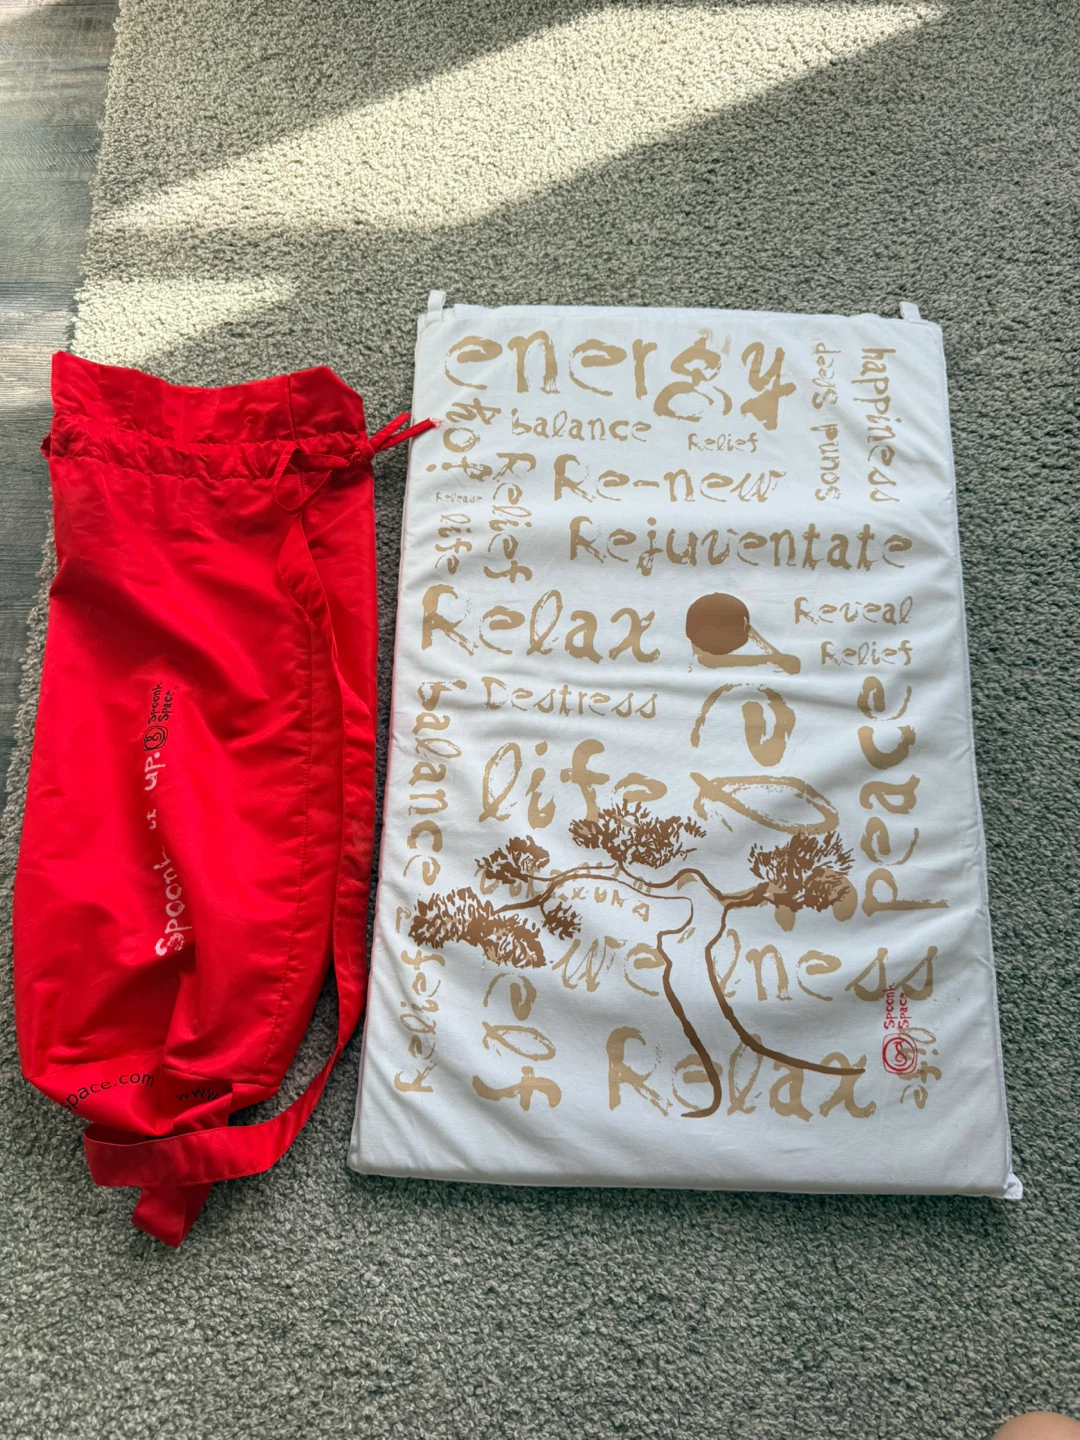 energy
Sound Sleep
happiness
joy
balance
Relief
Release
Relief
Re-new
life
Rejuventate
Relax
Reveal
Relief
balance
Destress
life
peace
wellness
Relax
life
Spoonk
Space
Spoonk
up.
Spoonk
Space
pace.com
www